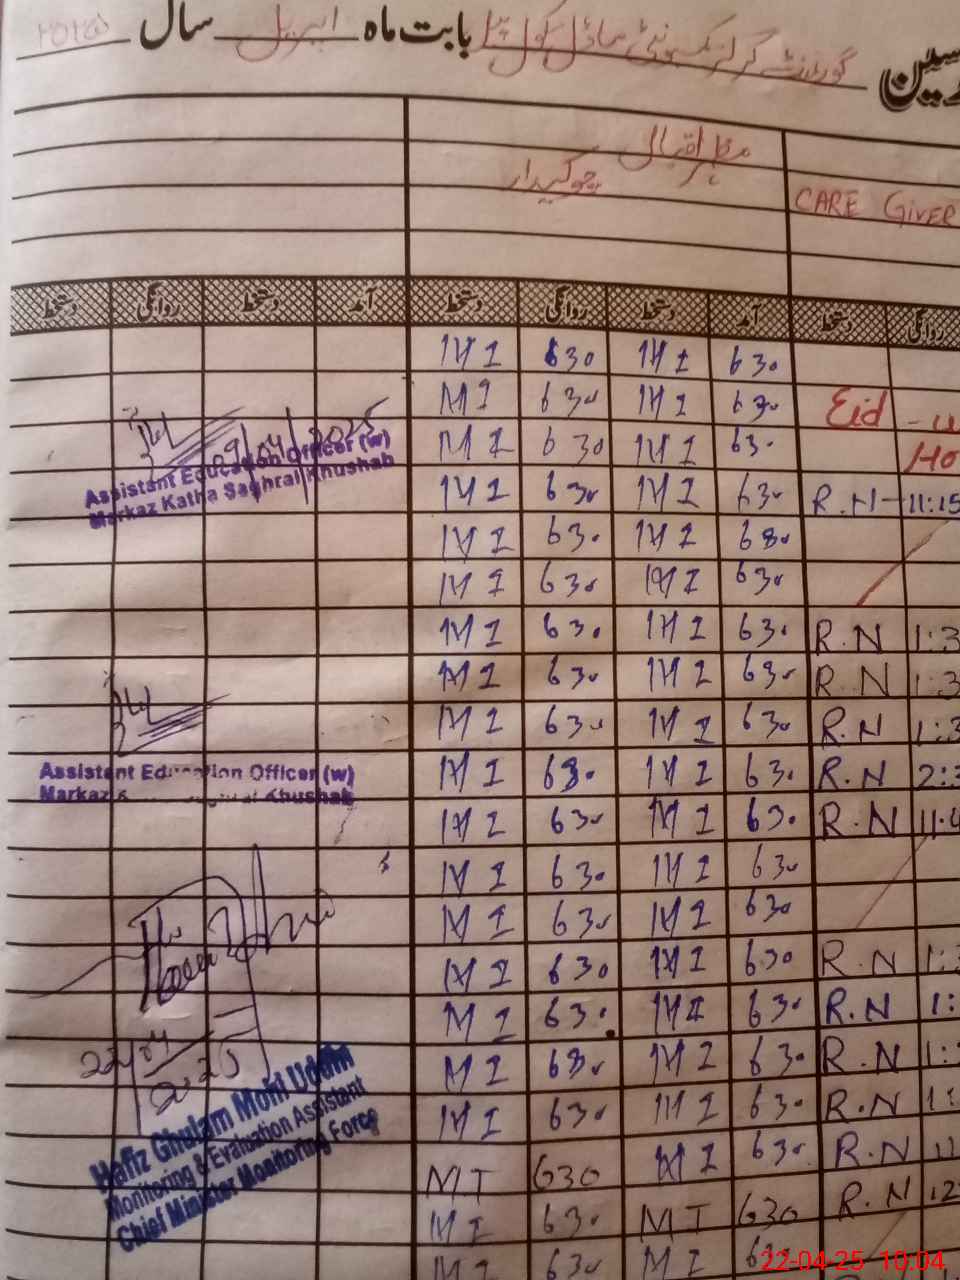 رسین گورنمنٹ گرلز کمیونٹی ماڈل سکول بابت ماہ اپریل سال ۲۰۲۵
مظہر اقبال
چوکیدار
CARE Giver
روانگی دستخط آمد دستخط روانگی دستخط آمد دستخط روانگی دستخط
M I 630 M I 630
M I 630 M I 630 Eid
M I 630 M I 630 Ho
M I 630 M I 630 R.N 11:15
M I 630 M I 630
M I 630 M I 630
M I 630 M I 630 R.N 1:3
M I 630 M I 630 R.N 1:3
M I 630 M I 630 R.N 1:3
M I 630 M I 630 R.N 2:3
M I 630 M I 630 R.N 11:4
M I 630 M I 630
M I 630 M I 630
M I 630 M I 630 R.N 1:3
M I 630 M I 630 R.N 1:
M I 630 M I 630 R.N 1:
M I 630 M I 630 R.N 1:
M I 630 M I 630 R.N 11
M I 630 M I 630 R.N 12
M I 630 M I 630
09/04/2025
Assistant Education Officer (w)
Markaz Katha Saghral Khushab
Assistant Education Officer (w)
Markaz Khushab
22/04/2025
Hafiz Ghulam Mohi Uddin
Monitoring & Evaluation Assistant
Chief Minister Monitoring Force
22-04-25 10:04